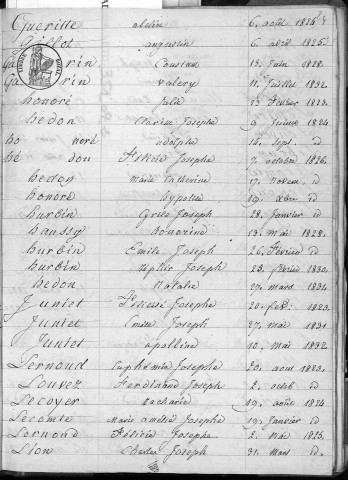 Gueritte alexine 6. août 1826
Gillot augustin 6. abril 1825
Ga rin Constant 13. Juin 1828.
Ga rin valery 11. Juillet 1832.
honoré Julie 23 fevrier 1823.
hedon Clarisse Josephe 9 1824
ho noré adolphe 14. sept. d
hé don félicie Josephe 7. octobre 1826.
hedon Marie Catherine 17. Novem. d
honoré hypolite 19. xbre d
hurbin Josephe 28. Janvier d
haussy honorine 13. mai 1828.
hurbin Emile Joseph 26. fevrier d
hurbin Joseph 23. fevrier 1830.
hedon Natalie 27. mars 1834
Juniet Josephe 20. 1823.
Juniet Emile Joseph 27. mai 1831
Juniet apolline 10. mai 1832
Lernoud Euphemie Josephe 20. aout 1823.
Louvez ferdinand Joseph 2. octob d
Lecoyer Zacharie 19. août 1824
Lecomte Marie amélie Josephe 19. Janvier d
Lernoud félicie Josephe 2. Mai 1825.
Lion Charles Joseph 31. Mars d.